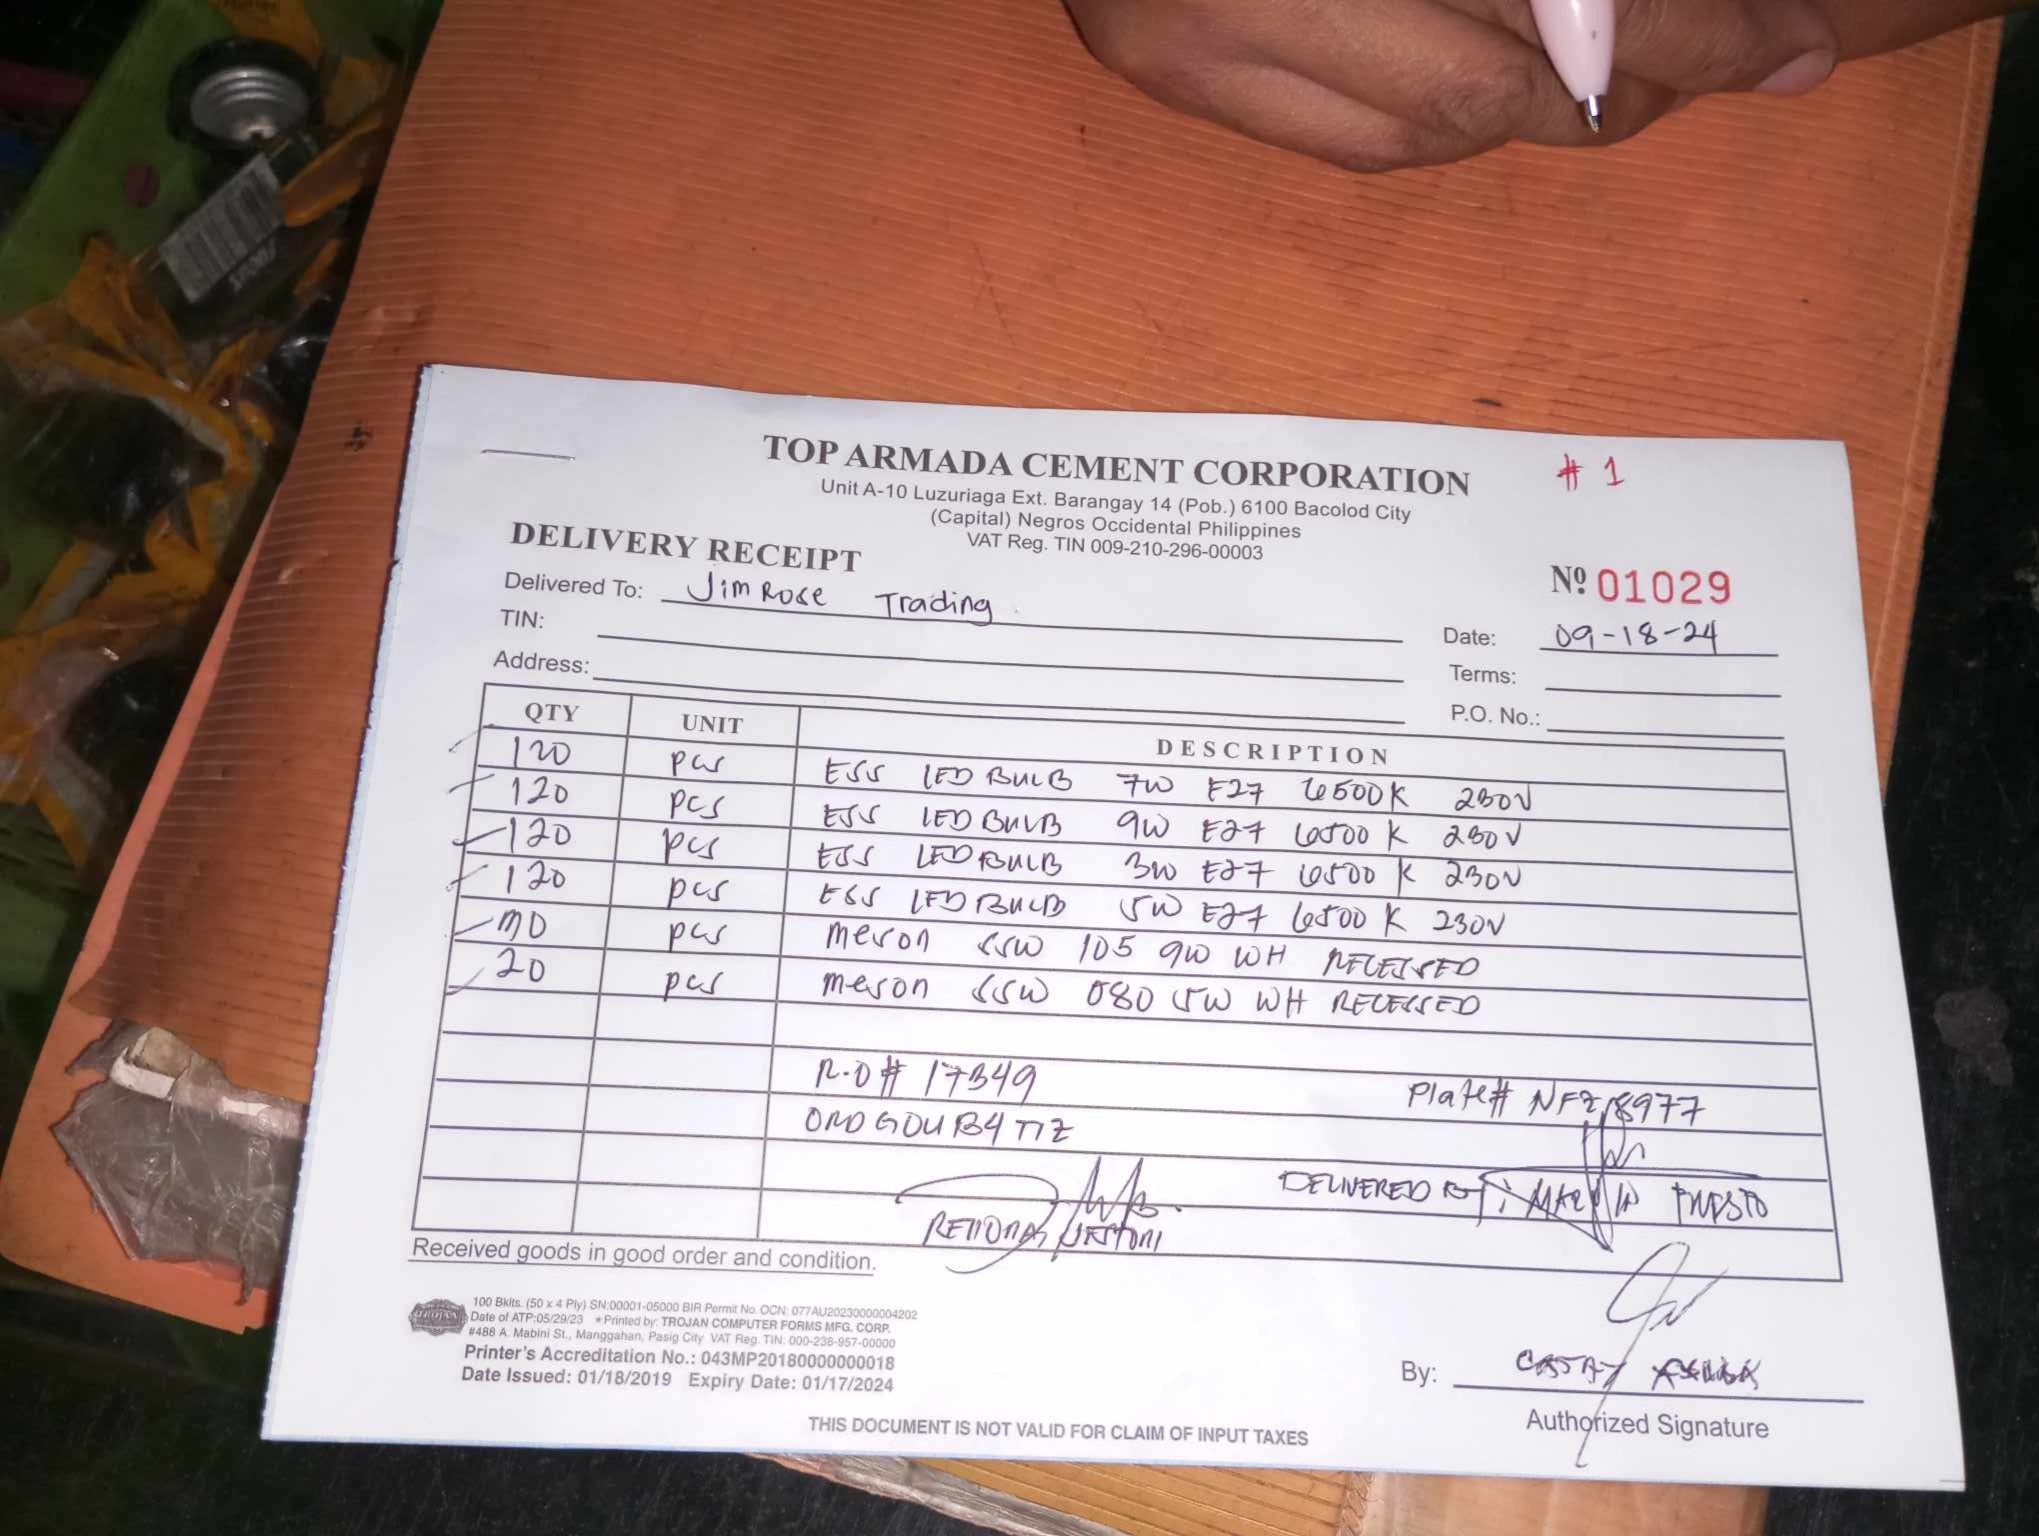 TOP ARMADA CEMENT CORPORATION
# 1
Unit A-10 Luzuriaga Ext. Barangay 14 (Pob.) 6100 Bacolod City
(Capital) Negros Occidental Philippines
VAT Reg. TIN 009-210-296-00003
DELIVERY RECEIPT
Nº 01029
Delivered To: Jim Rose Trading
Date: 09-18-24
TIN:
Terms:
Address:
P.O. No.:
QTY UNIT DESCRIPTION
120 pcs ESS LED BULB 7W E27 6500K 230V
120 pcs ESS LED BULB 9W E27 6500K 230V
120 pcs ESS LED BULB 3W E27 6500K 230V
120 pcs ESS LED BULB 5W E27 6500K 230V
pcs meson SSW 105 9W WH RECESSED
20 pcs meson SSW 080 5W WH RECESSED
R.O # 17349
Plate# NFZ 8977
DELIVERED BY:
Received goods in good order and condition.
100 Bklts. (50 x 4 Ply) SN:00001-05000 BIR Permit No. OCN: 077AU20230000004202
Date of ATP:05/29/23 *Printed by: TROJAN COMPUTER FORMS MFG. CORP.
#488 A. Mabini St., Manggahan, Pasig City VAT Reg. TIN. 000-238-957-00000
Printer's Accreditation No.: 043MP20180000000018
Date Issued: 01/18/2019 Expiry Date: 01/17/2024
By:
Authorized Signature
THIS DOCUMENT IS NOT VALID FOR CLAIM OF INPUT TAXES